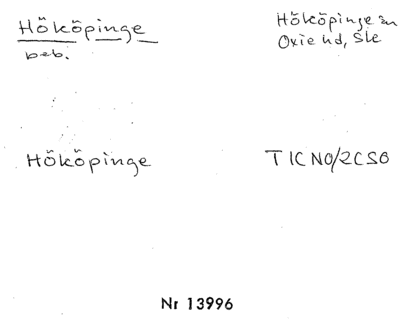 Hököpinge
beb.
Hököpinge sn
Oxie hd, Ske
Hököpinge
T1CNO/2CSO
Nr 13996